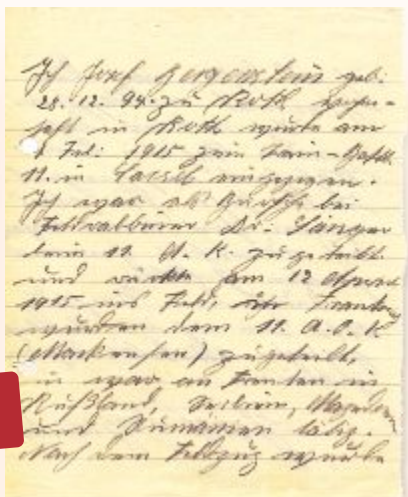 Ich Josef Gergenstein geb.
28.12.94 zu Roth wohn-
haft in Roth wurde am
Feb. 1915 zum Train-Batl.
11. in Cassel eingezogen.
Ich war als Bursche bei
Dr. Sänger
beim 11. A. K. zugeteilt
und rückte am 12
1915 ins Feld,
wurden dem 11. A.O.K
(Mackensen) zugeteilt,
war an Fronten in
Rußland, Serbien,
und Rumänien tätig.
Nach dem Feldzug wurde